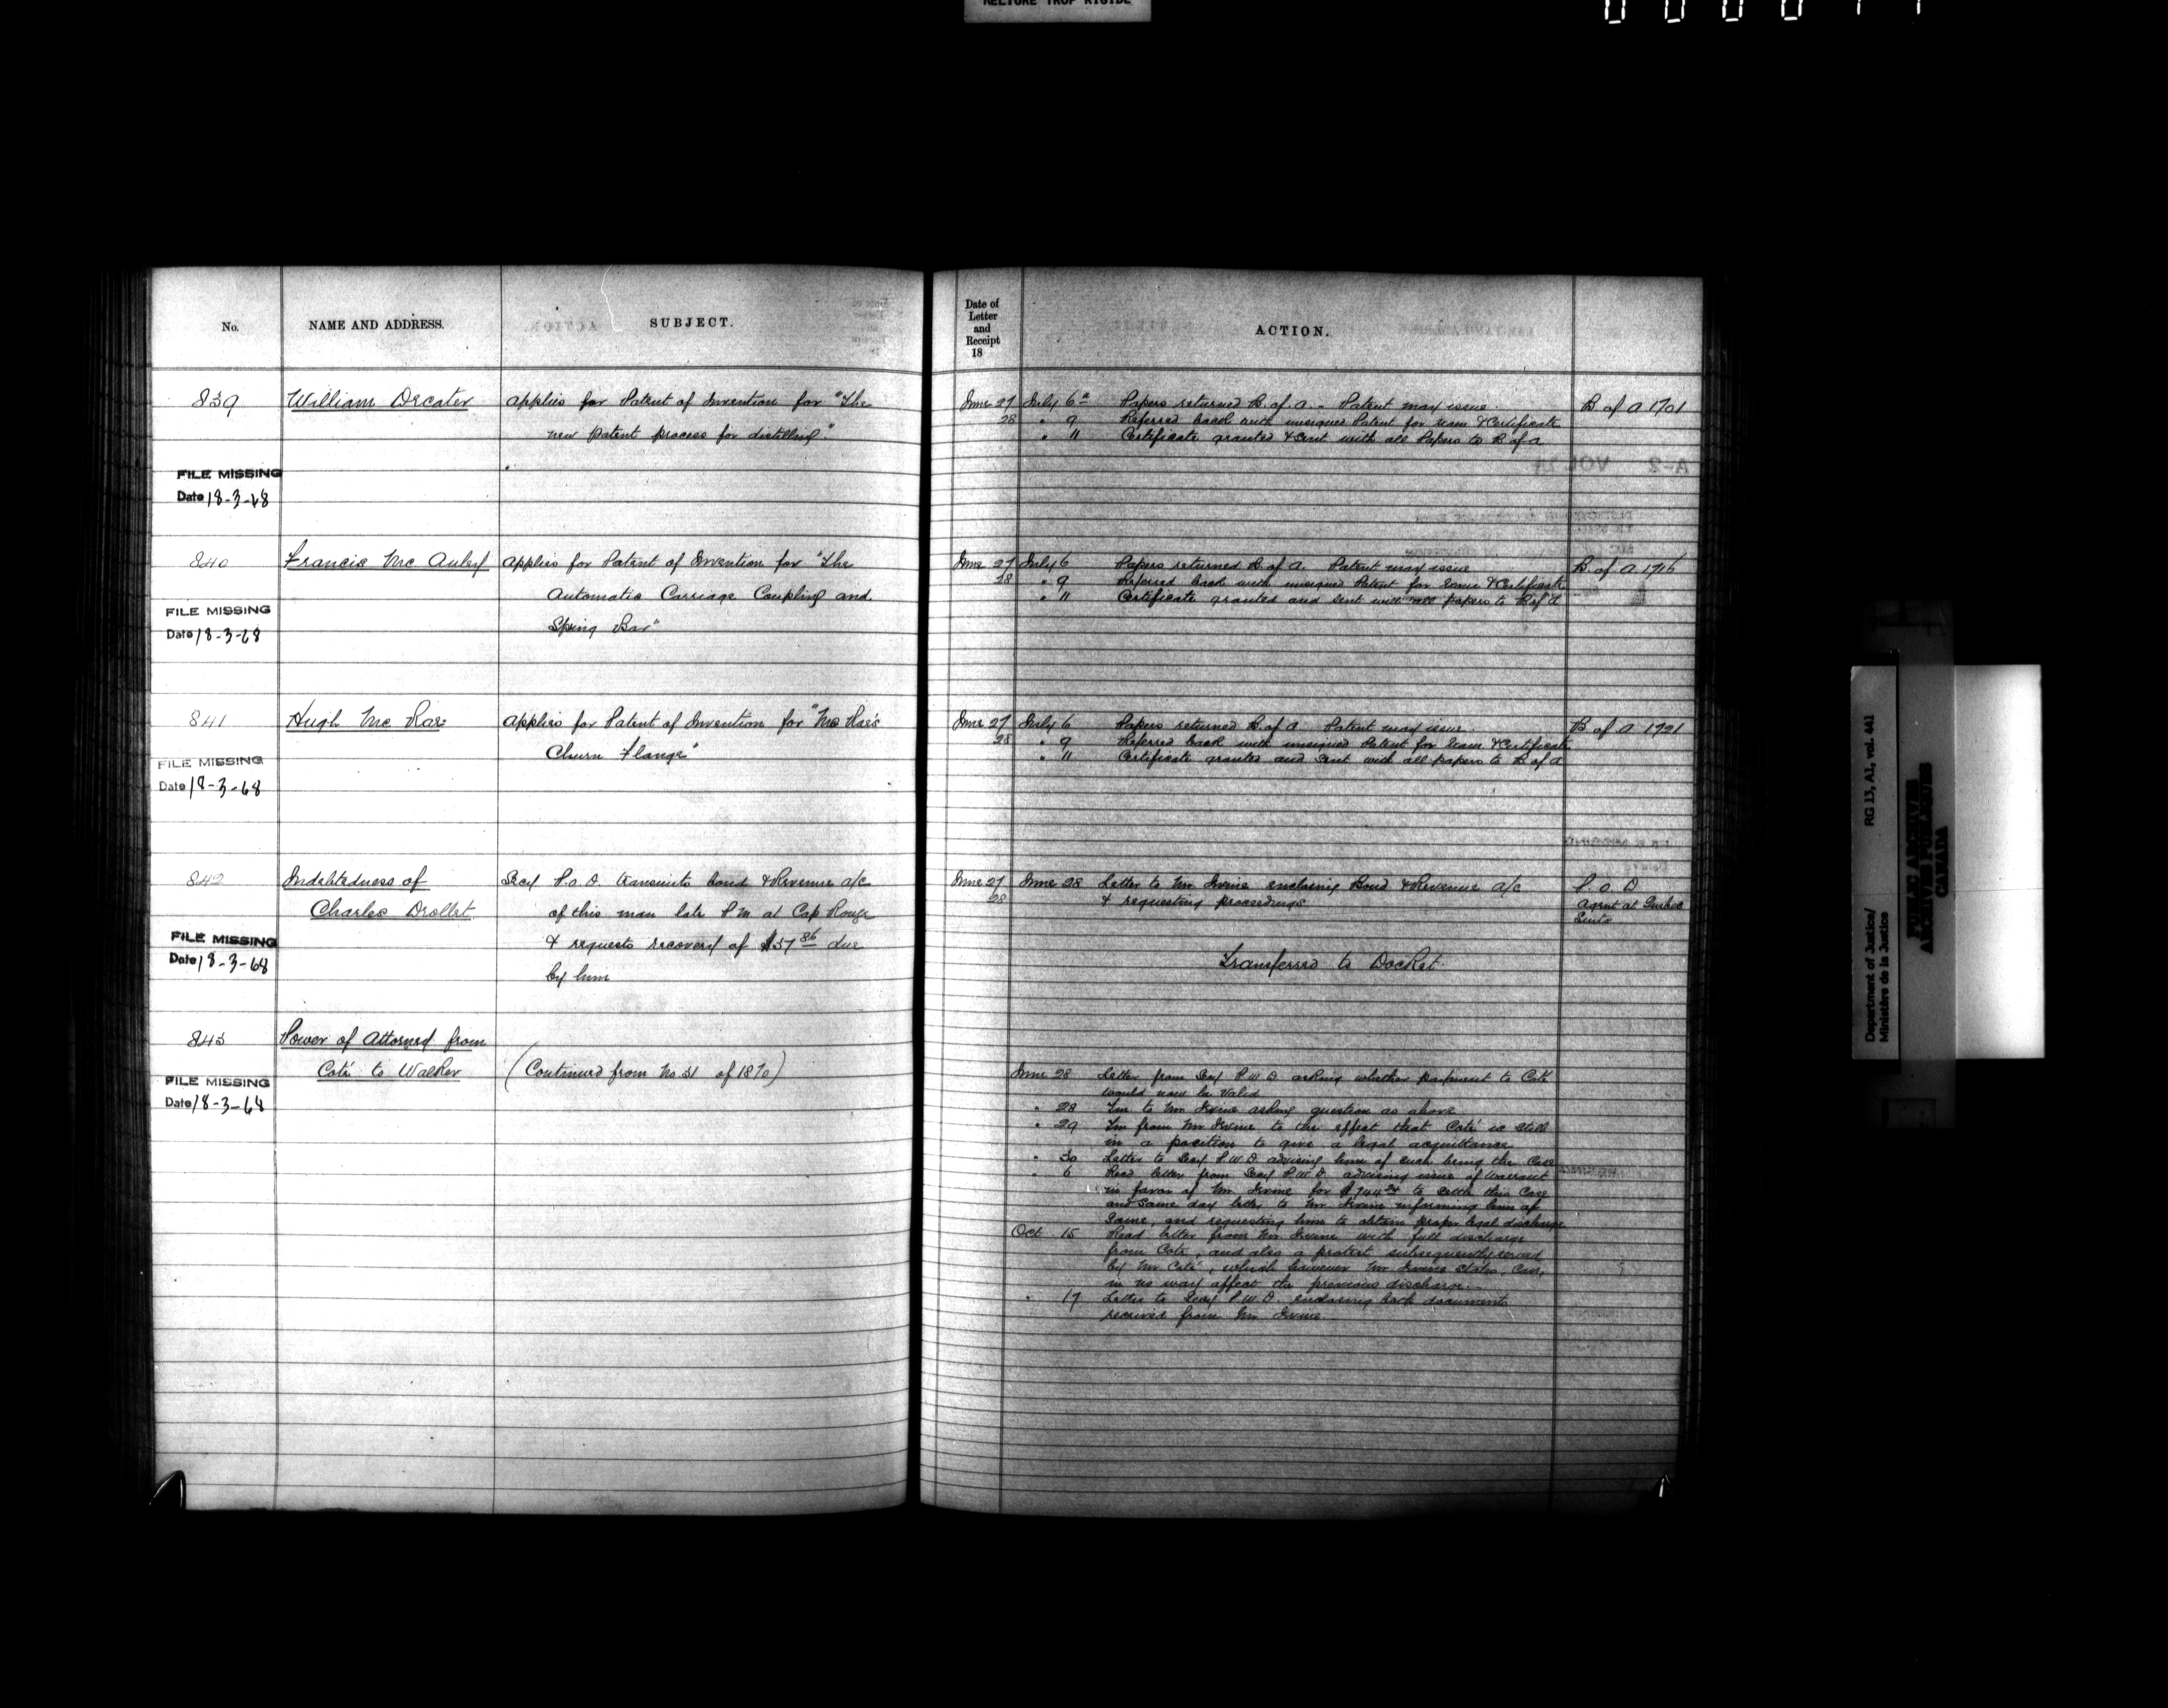 RELIURE TROP RIGIDE
No.
NAME AND ADDRESS.
SUBJECT.
Date of
Letter
and
Receipt
18
ACTION.
839
William Decater
applies for Patent of Invention for "The
new patent process for distilling."
June 27
28
July 6th Papers returned B. of A. - Patent may issue.
" 9 Referred back with unsigned Patent for exam & Certificate
" 11 Certificate granted & sent with all Papers to B of A
B of A 1701
FILE MISSING
Date 18-3-68
840
Francis Mc Auley
applies for Patent of Invention for "The
Automatic Carriage Coupling and
Spring Bar"
June 27
28
July 6 Papers returned B. of A. Patent may issue
" 9 Referred back with unsigned Patent for exam & Certificate
" 11 Certificate granted and sent with all papers to B of A
B. of A 1716
FILE MISSING
Date 18-3-68
841
Hugh Mc Rae
applies for Patent of Invention for "Mc Rae's
Churn Flange"
June 27
28
July 6 Papers returned B. of A Patent may issue.
" 9 Referred back with unsigned Patent for exam & Certificate
" 11 Certificate granted and sent with all papers to B of A
B of A 1721
FILE MISSING
Date 18-3-68
842
Indebtedness of
Charles Drollet
Secy P.O.D transmits bond & Revenue a/c
of this man late P.M. at Cap Rouge
& requests recovery of $37 86 due
by him
June 27
28
June 28 Letter to Mr. Irvine enclosing Bond & Revenue a/c
& requesting proceedings
P.O.D
Agent at Quebec
Suits
Transferred to Docket
FILE MISSING
Date 18-3-68
843
Power of Attorney from
Coté to Walker
(Continued from No. 31 of 1870)
FILE MISSING
Date 18-3-68
June 28 Letter from Secy P.W.D asking whether payment to Coté
would now be valid
" 28 Tm to Mr Irvine asking question as above
" 29 Tm from Mr Irvine to the effect that Coté is still
in a position to give a legal acquittance
" 30 Letter to Secy P.W.D. advising him of such being the Case
" 6 Recd letter from Secy P.W.D. advising issue of warrant
in favor of Mr. Irvine for to settle this Case
and same day letter to Mr. Irvine informing him of
same, and requesting him to obtain proper legal discharge
Oct. 15 Read letter from Mr Irvine with full discharge
from Coté, and also a protest subsequently served
by Mr Coté, which however Mr. Irvine states, can,
in no way affect the previous discharge.
" 17 Letter to Secy P.W.D. enclosing both documents
received from Mr Irvine
Department of Justice/
Ministère de la Justice
RG 13, A1, vol. 441
PUBLIC ARCHIVES
ARCHIVES PUBLIQUES
CANADA